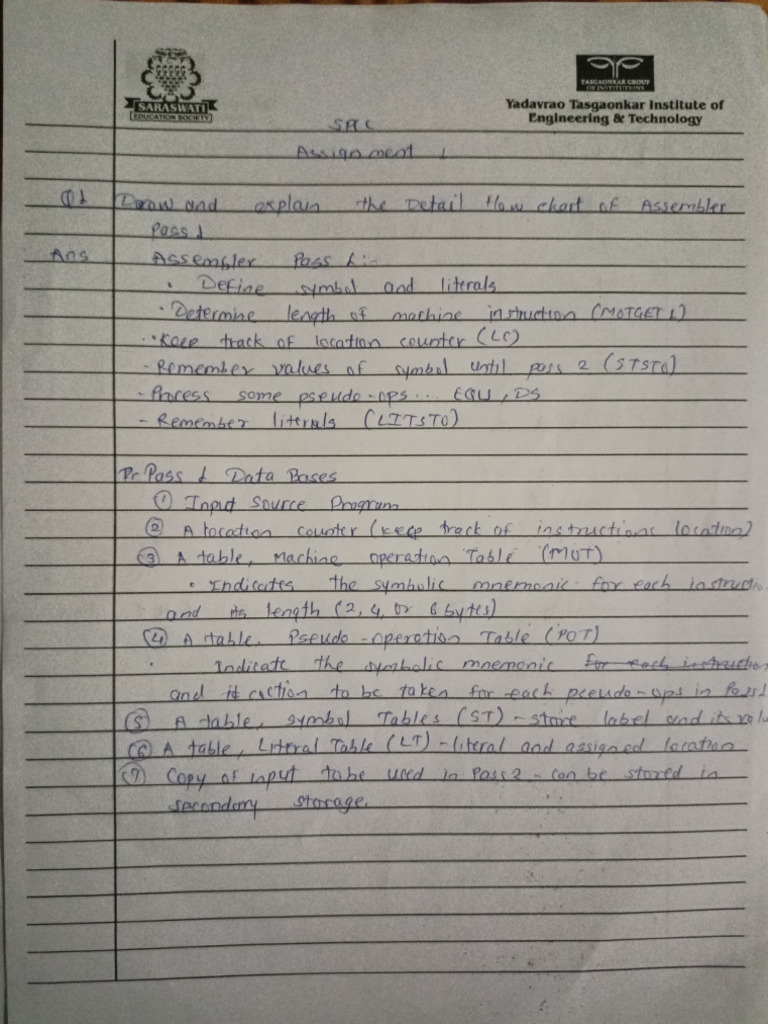 SARASWATI
EDUCATION SOCIETY
TASGAONKAR GROUP
OF INSTITUTIONS
Yadavrao Tasgaonkar Institute of
Engineering & Technology
Assignment 1
Q1 Draw and explain the Detail flow chart of Assembler
Pass 1
Ans Assembler Pass 1:-
• Define symbol and literals
• Determine length of machine instruction (MOTGET1)
• Keep track of location counter (LC)
- Remember values of symbol until pass 2 (STSTO)
- Process some pseudo-ops... EQU, DS
- Remember literals (LITSTO)
Pass 1 Data Bases
① Input Source Program
② A location counter (keep track of instructions location)
③ A table, Machine operation Table (MOT)
• Indicates the symbolic mnemonic for each instructio
and its length (2, 4, or 6 bytes)
④ A table, Pseudo-operation Table (POT)
• Indicate the symbolic mnemonic for each instruction
and it action to be taken for each pseudo-ops in Pass1
⑤ A table, symbol Tables (ST) - store label and its valu
⑥ A table, Literal Table (LT) - literal and assigned location
⑦ Copy of input to be used in Pass 2 - can be stored in
secondary storage.